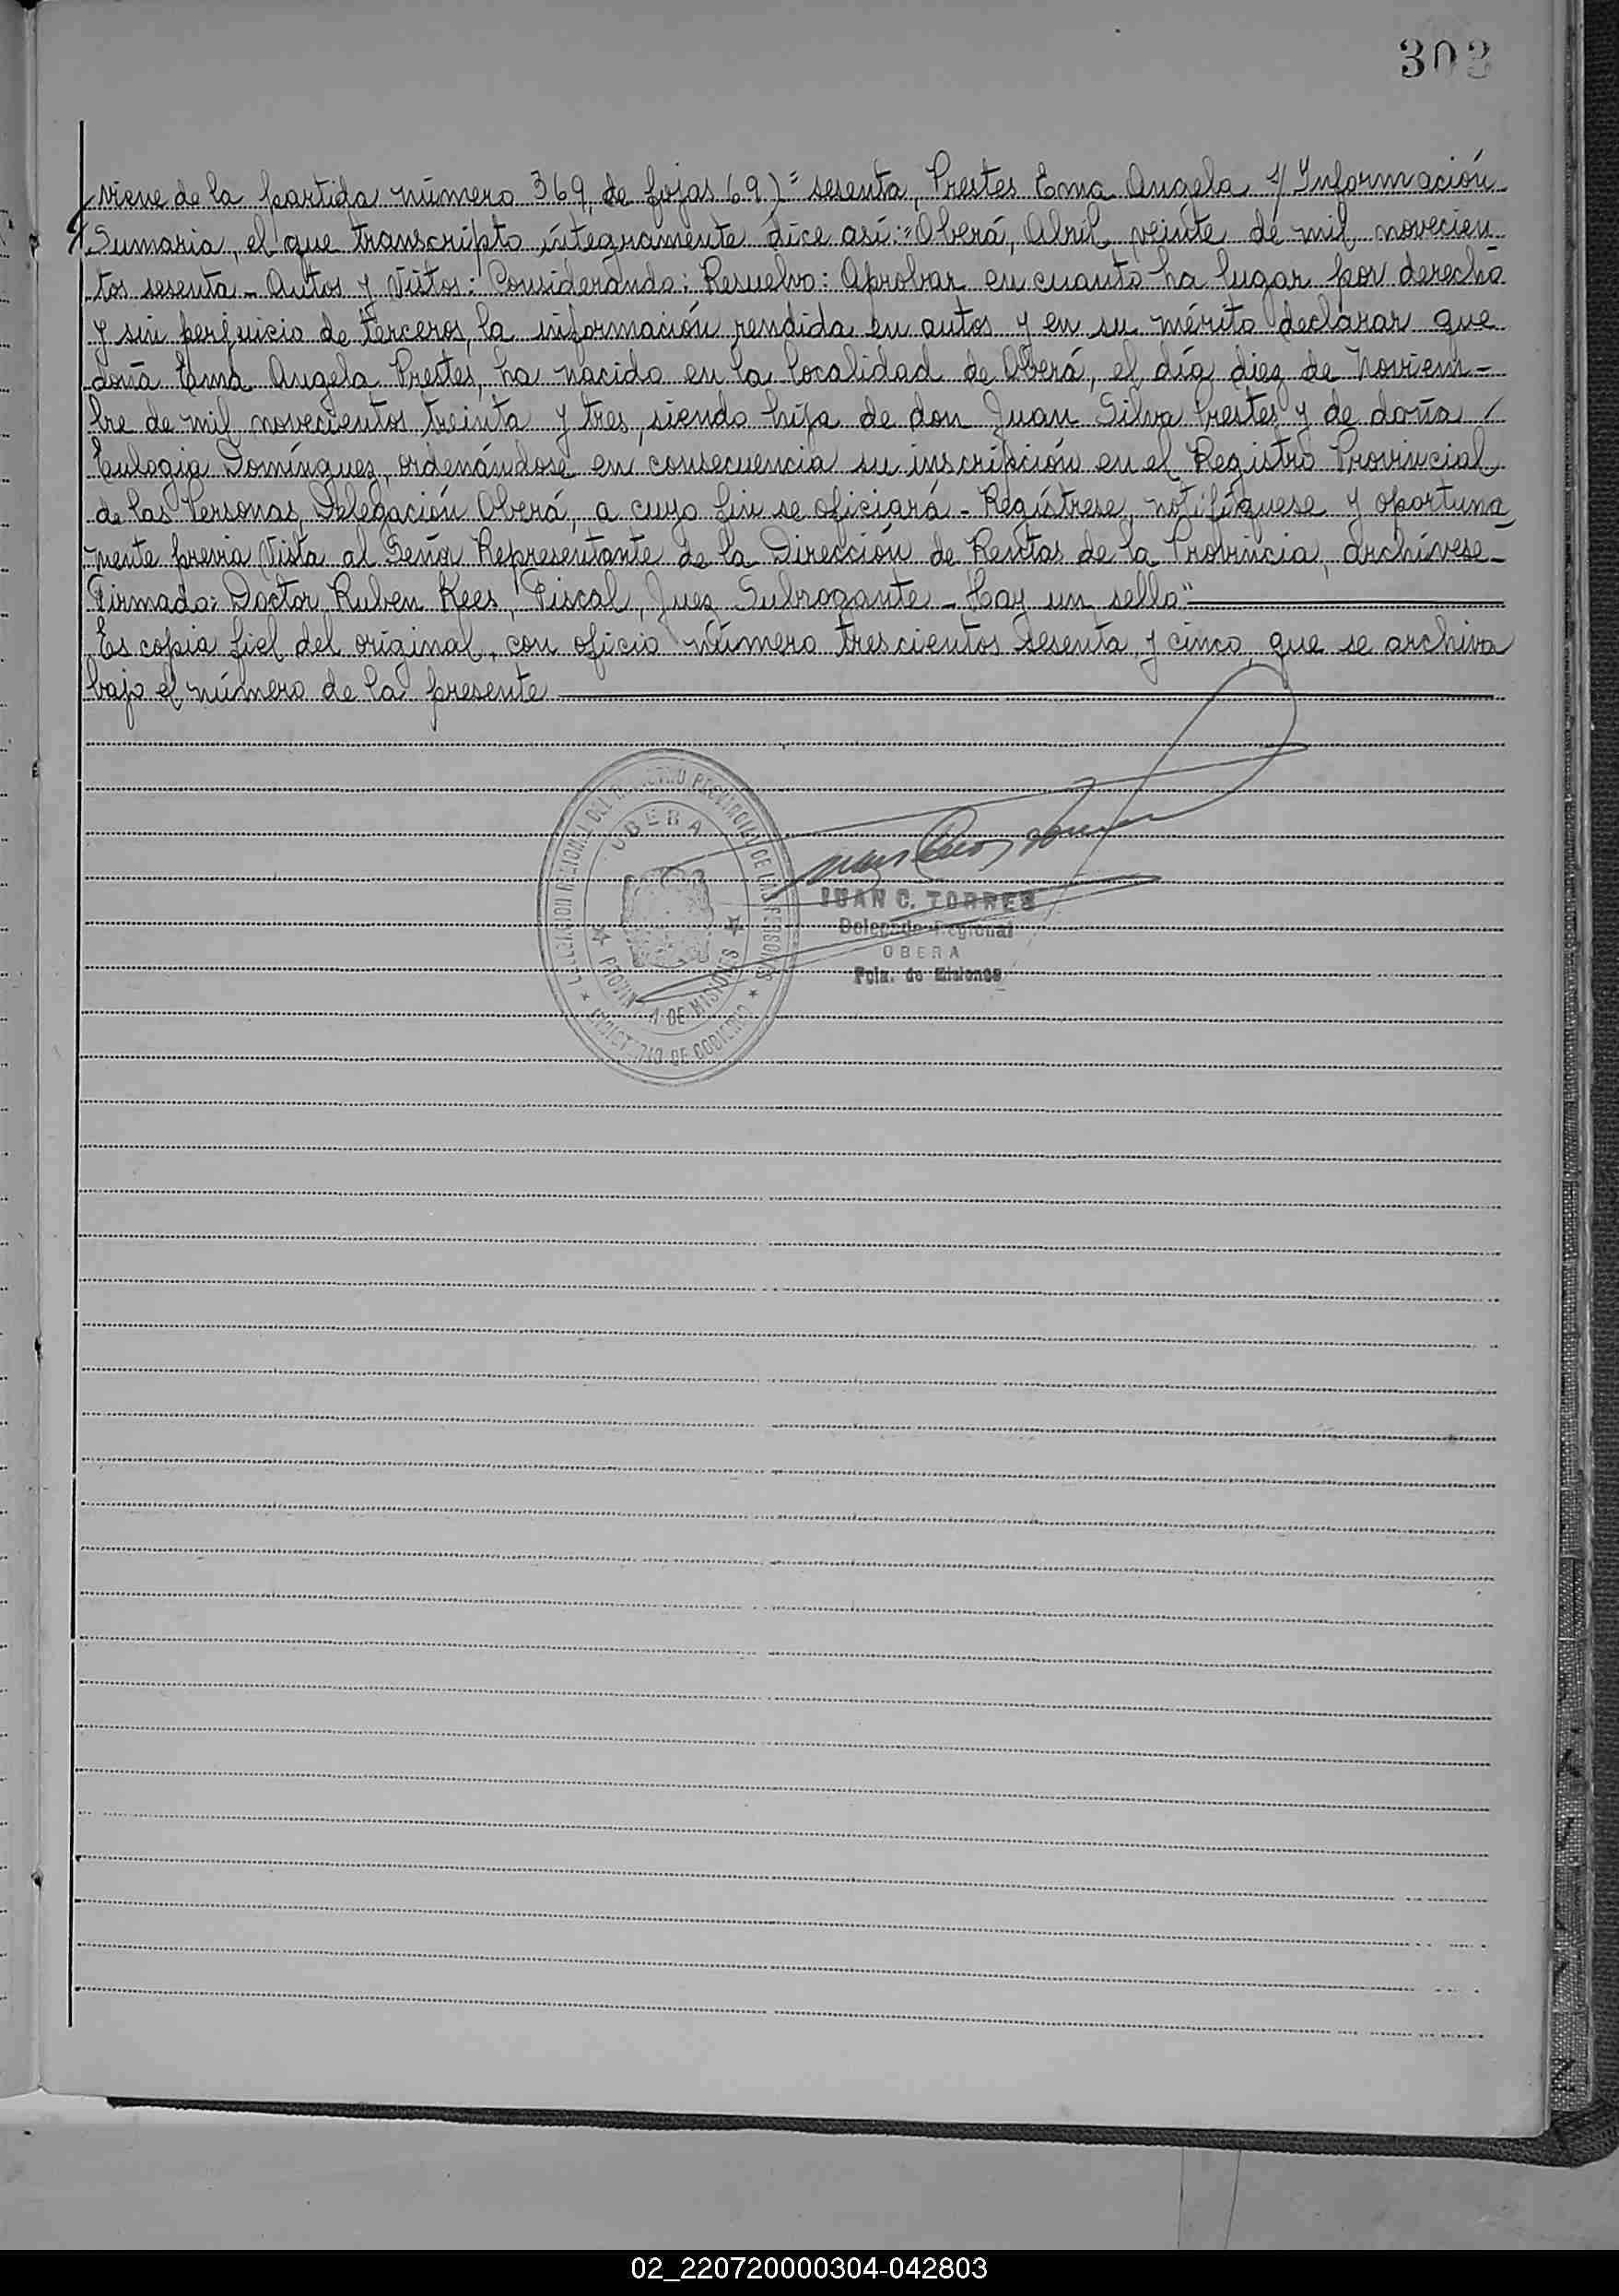 303
viene de la partida número 369, de fojas 69) = sesenta, Prestes Ema Angela s/ Información
Sumaria, el que transcripto íntegramente dice así: "Oberá, Abril, veinte de mil novecien-
tos sesenta - Autos y Vistos: Considerando: Resuelvo: Aprobar en cuanto ha lugar por derecho
y sin perjuicio de terceros, la información rendida en autos y en su mérito declarar que
doña Ema Angela Prestes, ha nacido en la localidad de Oberá, el día diez de Noviem-
bre de mil novecientos treinta y tres, siendo hija de don Juan Silva Prestes y de doña /
Eulogia Domínguez, ordenándose en consecuencia su inscripción en el Registro Provincial
de las Personas, Delegación Oberá, a cuyo fin se oficiará - Regístrese, notifíquese y oportuna
mente previa vista al Señor Representante de la Dirección de Rentas de la Provincia, archívese -
Firmado: Doctor Ruben Kees, Fiscal, Juez Subrogante - Hay un sello"
Es copia fiel del original, con oficio número trescientos sesenta y cinco, que se archiva
bajo el número de la presente
OBERA
PROVINCIA DE MISIONES
MINISTERIO DE GOBIERNO
JUAN C. TORRES
Delegado Regional
OBERA
Pcia. de Misiones
02_220720000304-042803